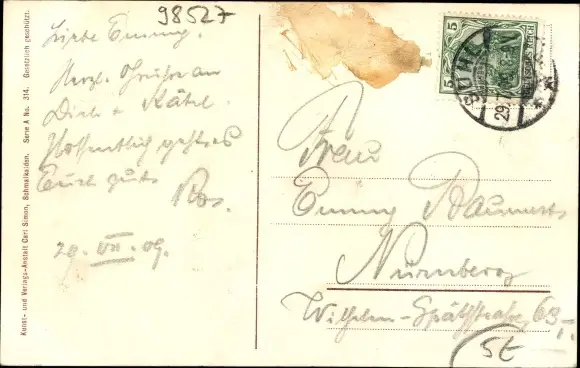 98527
Liebe Emmy.
Herzl. Grüße an
Dich + Kätel.
Hoffentlich geht es
Euch gut.
Ros.
29. VII. 09.
Kunst- und Verlags-Anstalt Carl Simon, Schmalkalden. Serie A No. 314. Gesetzlich geschützt.
5
SUHL
29.7
Frau
Emmy
Nürnberg
Wilhelm-Späthstraße, 63 I.
St